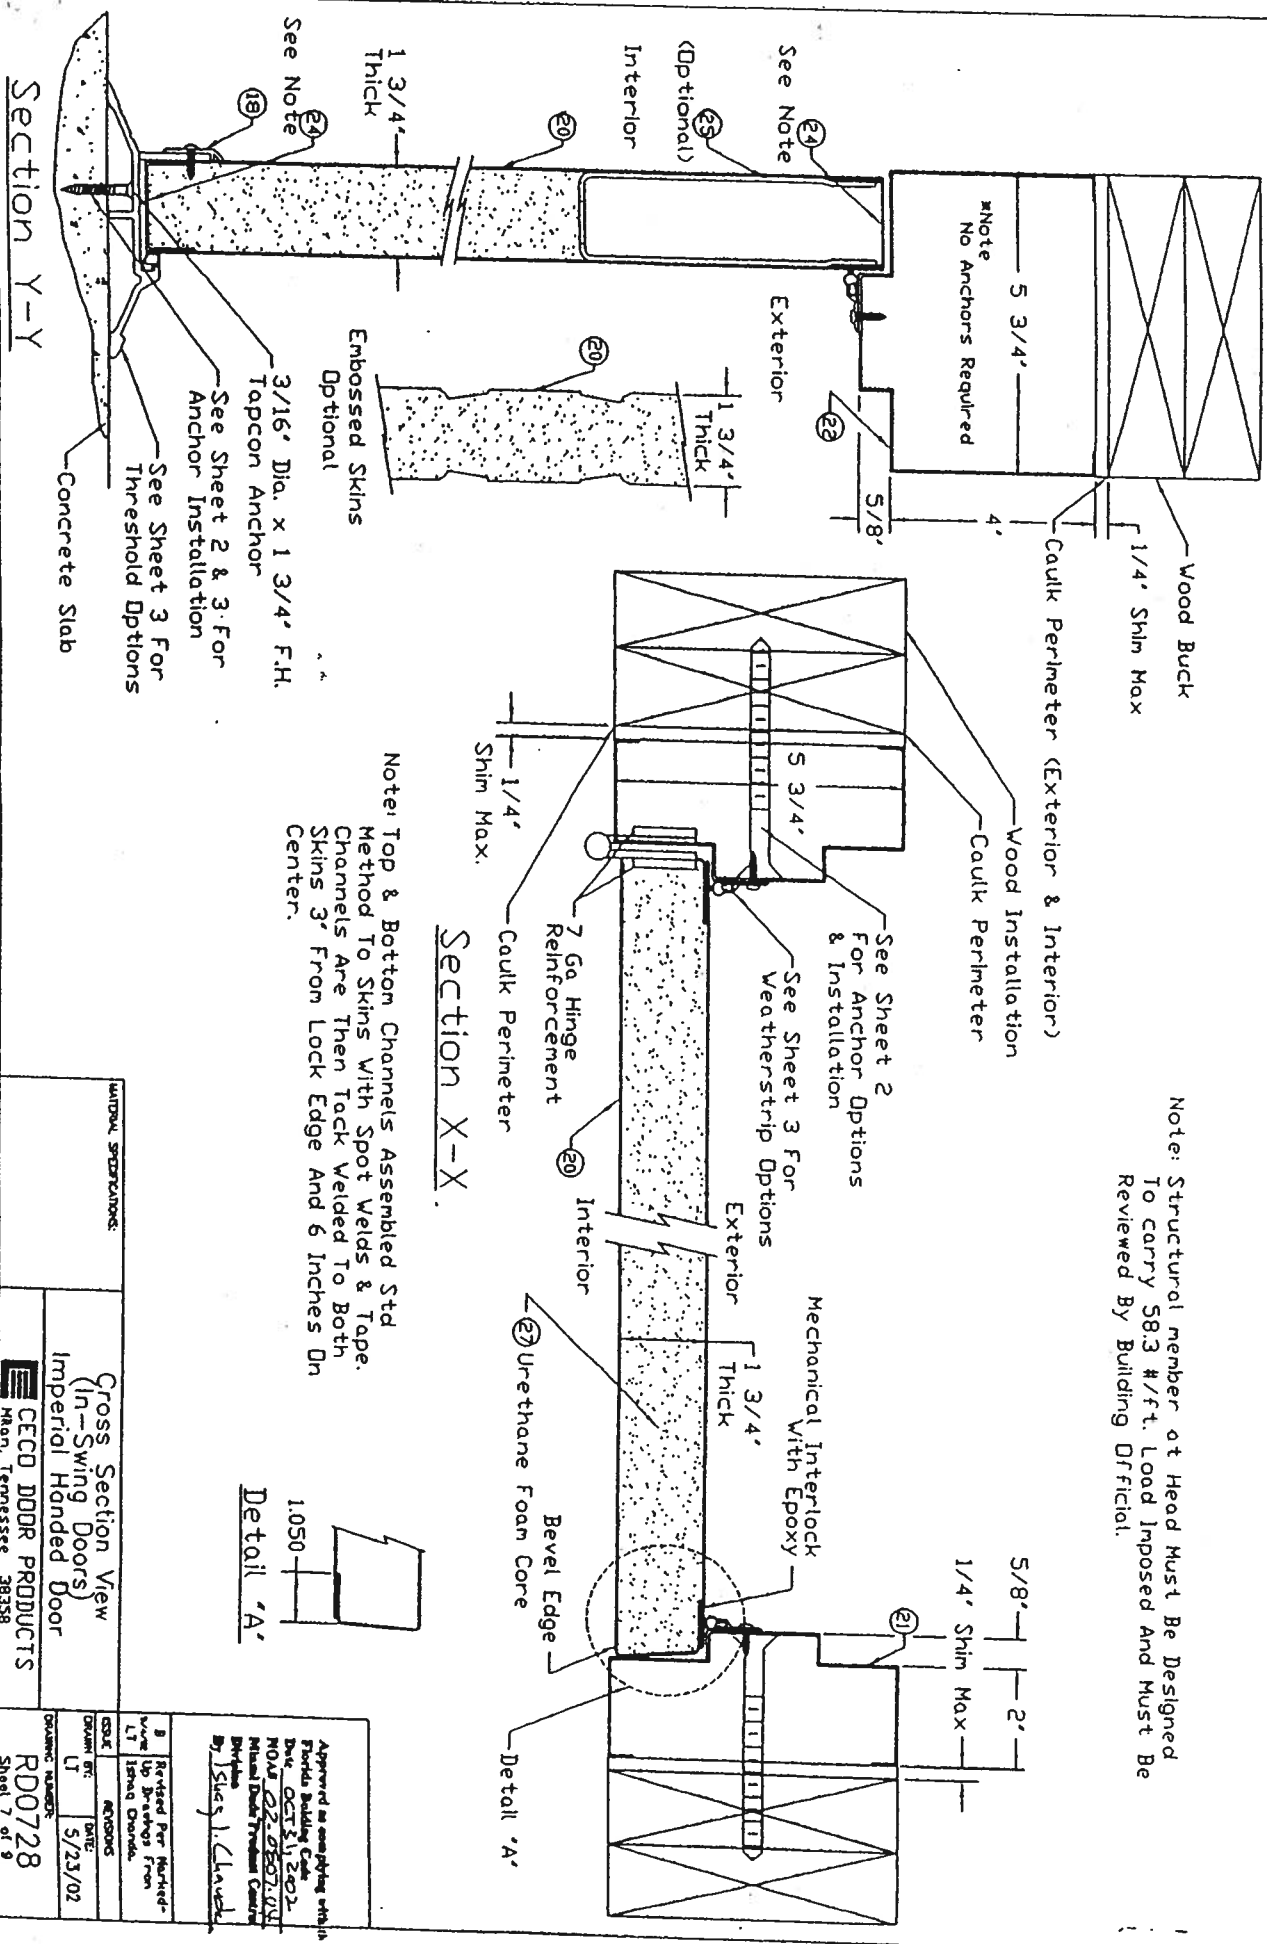 Note: Structural member at Head Must Be Designed
To carry 58.3 #/ft. Load Imposed And Must Be
Reviewed By Building Official.
Wood Buck
1/4" Shim Max
Caulk Perimeter (Exterior & Interior)
4"
5/8"
5 3/4"
*Note
No Anchors Required
22
Exterior
See Note
24
(Optional)
25
Interior
20
1 3/4"
Thick
See Note
24
18
1 3/4"
Thick
20
Embossed Skins
Optional
3/16" Dia. x 1 3/4" F.H.
Tapcon Anchor
See Sheet 2 & 3 For
Anchor Installation
See Sheet 3 For
Threshold Options
Concrete Slab
Section Y-Y
Wood Installation
Caulk Perimeter
5 3/4"
See Sheet 2
For Anchor Options
& Installation
See Sheet 3 For
Weatherstrip Options
1/4"
Shim Max.
7 Ga Hinge
Reinforcement
Caulk Perimeter
Section X-X
20
Interior
Exterior
1 3/4"
Thick
Mechanical Interlock
With Epoxy
27
Urethane Foam Core
Bevel Edge
5/8"
2"
1/4" Shim Max
21
Detail "A"
Note: Top & Bottom Channels Assembled Std
Method To Skins With Spot Welds & Tape.
Channels Are Then Tack Welded To Both
Skins 3" From Lock Edge And 6 Inches On
Center.
1.050
Detail "A"
MATERIAL SPECIFICATIONS:
Cross Section View
(In-Swing Doors)
Imperial Handed Door
CECO DOOR PRODUCTS
Milan, Tennessee 38358
Approved as complying with the
Florida Building Code
Date OCT 31, 2002
NOA# 02-0807.04
Miami Dade Product Control
Division
By
B
LT
Revised Per Marked-
Up Drawings From
Ishaq Chanda.
ISSUE
REVISIONS
DRAWN BY:
LT
DATE:
5/23/02
DRAWING NUMBER:
RD0728
Sheet 7 of 9